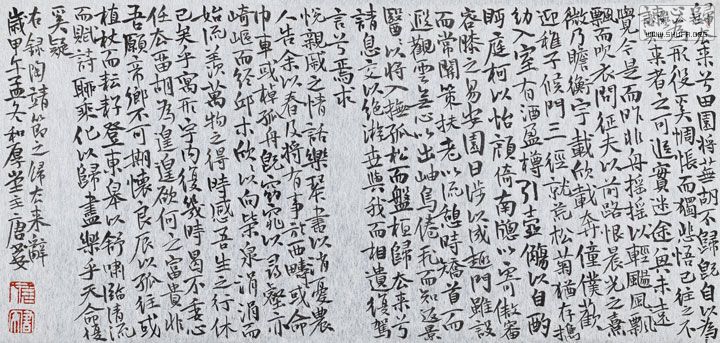 歸去來兮田園將蕪胡不歸既自以為
心形役奚惆悵而獨悲悟已往之不
諫知來者之可追實迷途其未遠
覺今是而昨非舟搖搖以輕颺風飄
飄而吹衣問征夫以前路恨晨光之熹
微乃瞻衡宇載欣載奔僮僕歡
迎稚子候門三徑就荒松菊猶存攜
幼入室有酒盈樽引壺觴以自酌
眄庭柯以怡顏倚南牕以寄傲審
容膝之易安園日涉以成趣門雖設
而常關策扶老以流憩時矯首而
遐觀雲無心以出岫鳥倦飛而知還景
翳以將入撫孤松而盤桓歸去來兮
請息交以絕游世與我而相遺復駕
言兮焉求
悅親戚之情話樂琴書以消憂農
人告余以春及將有事於西疇或命
巾車或棹孤舟既窈窕以尋壑亦
崎嶇而經邱木欣欣以向榮泉涓涓而
始流羨萬物之得時感吾生之行休
已矣乎寓形宇內復幾時曷不委心
任去留胡為遑遑欲何之富貴非
吾願帝鄉不可期懷良辰以孤往或
植杖而耘耔登東皋以舒嘯臨清流
而賦詩聊乘化以歸盡樂乎天命復
奚疑
右錄陶靖節之歸去來辭
歲甲午孟冬和厚堂主唐